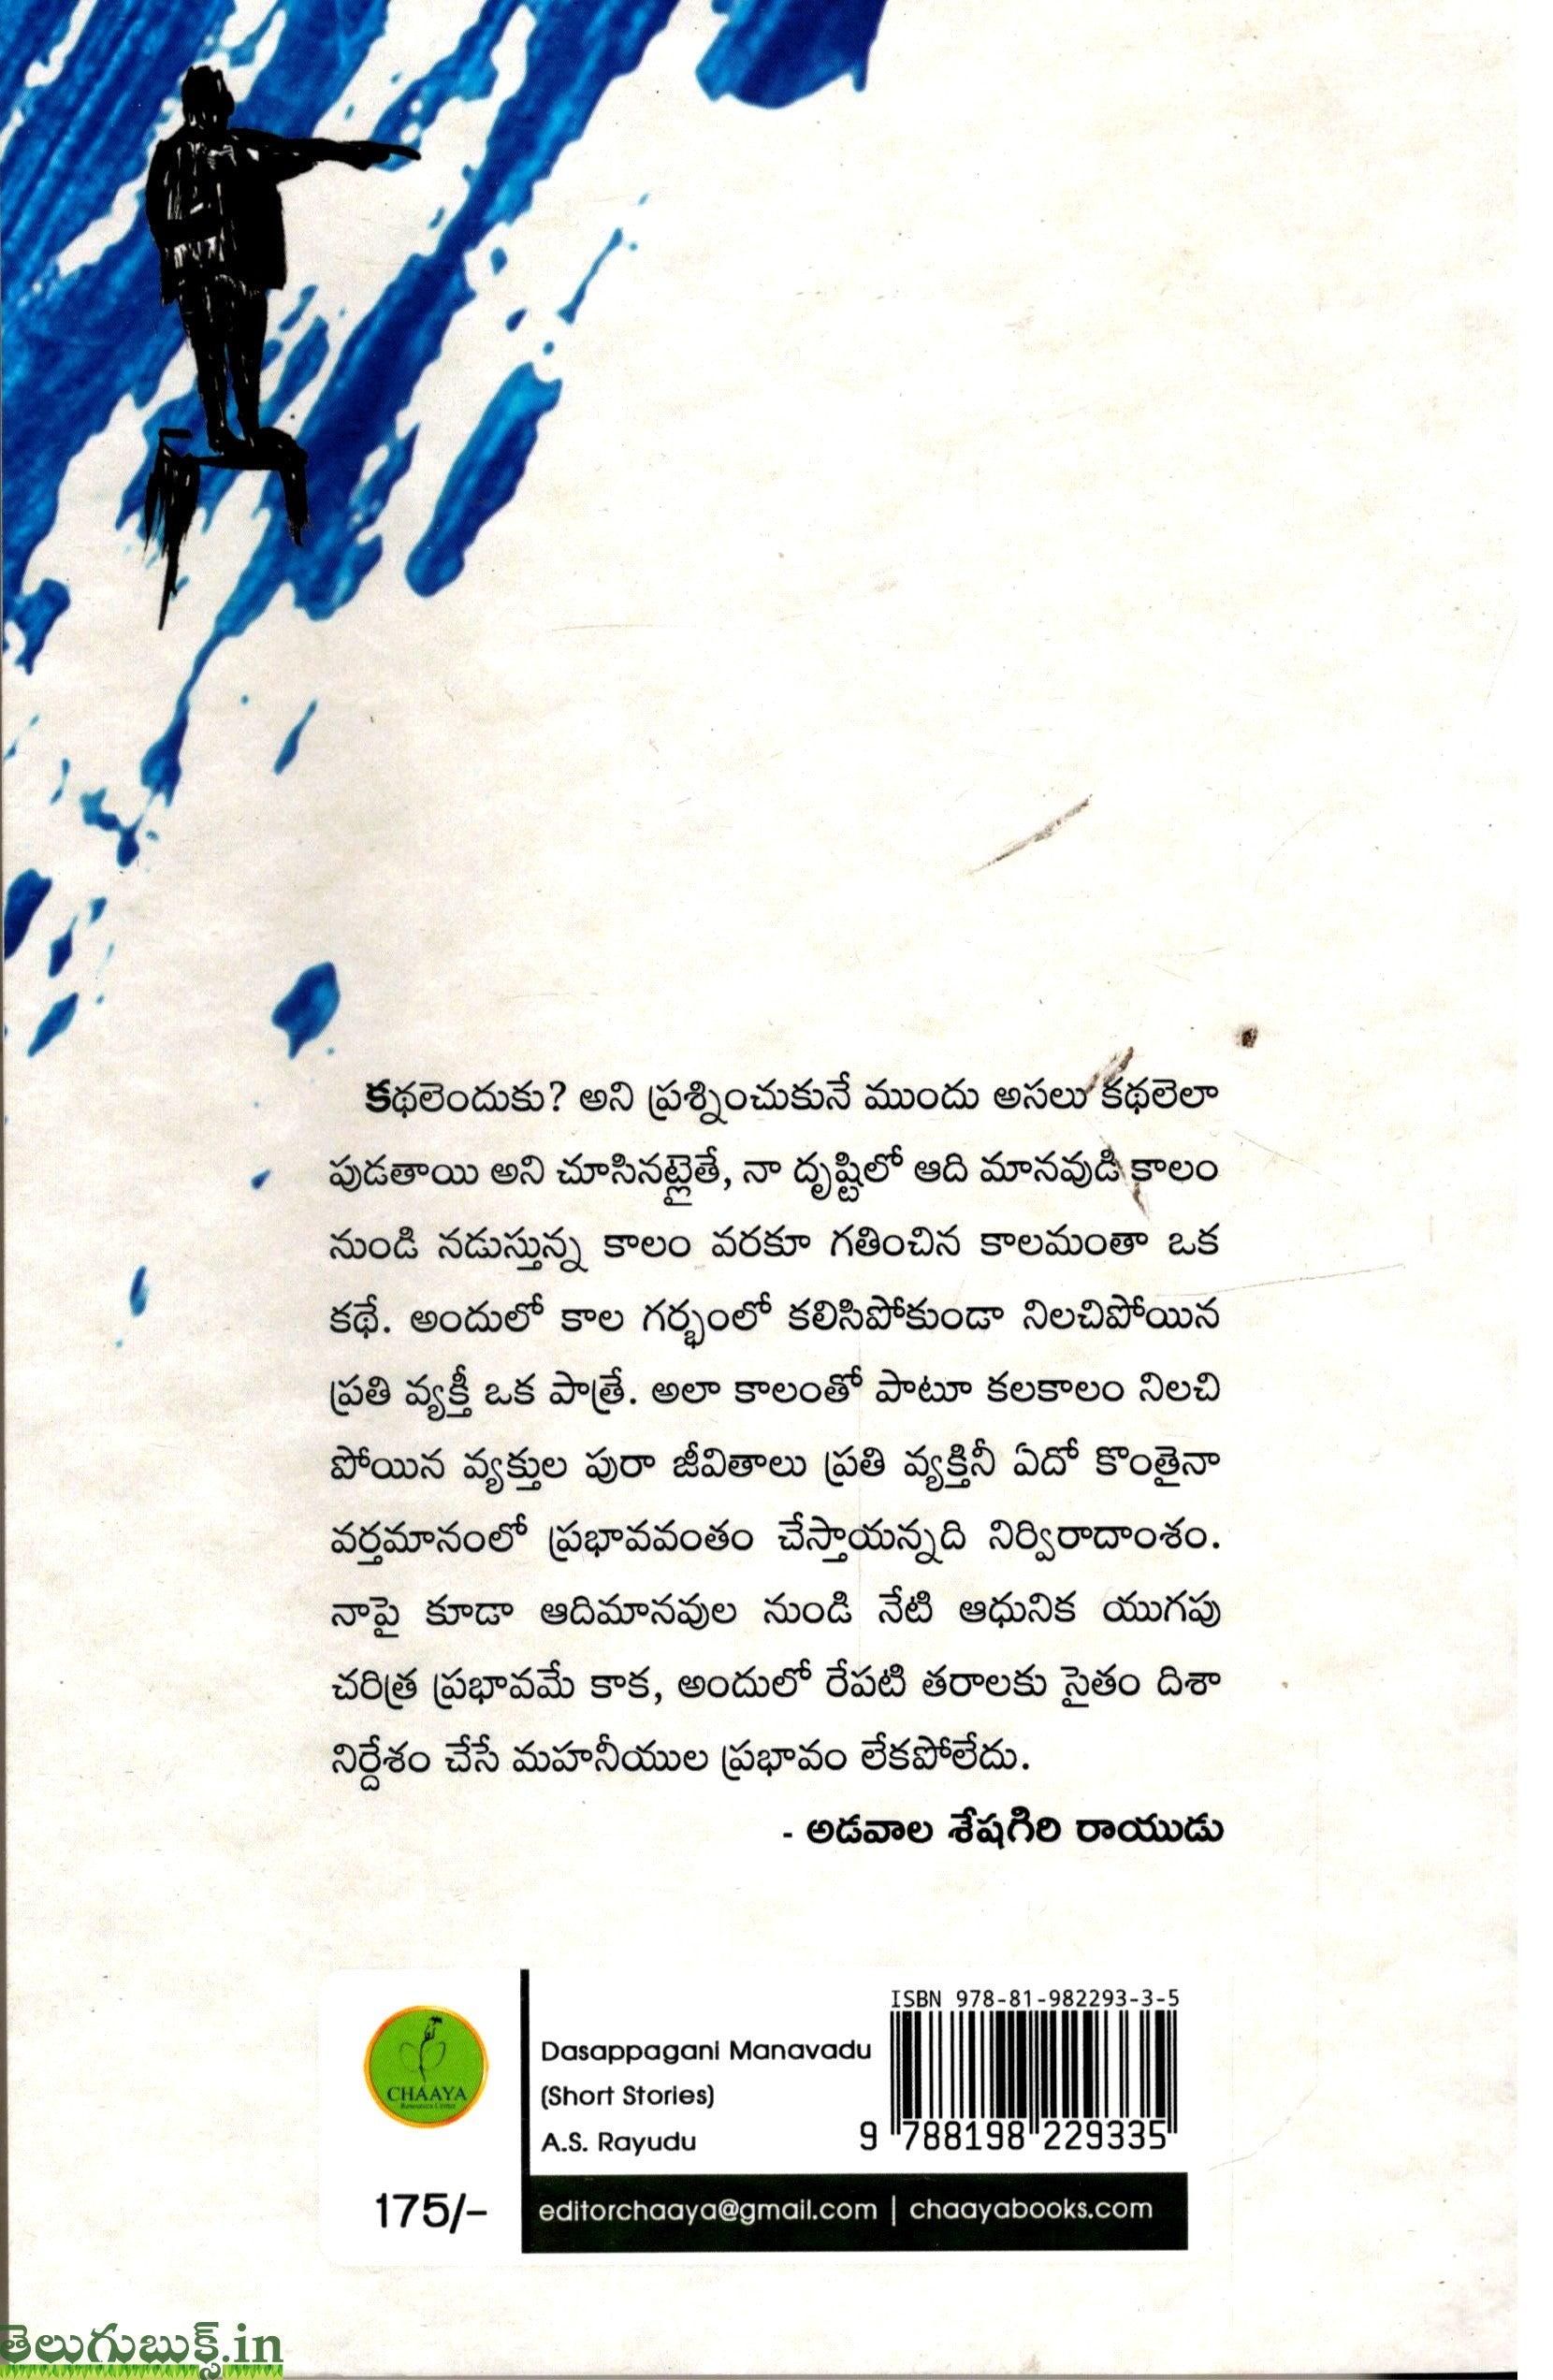 కథలెందుకు? అని ప్రశ్నించుకునే ముందు అసలు కథలెలా
పుడతాయి అని చూసినట్లైతే, నా దృష్టిలో ఆది మానవుడి కాలం
నుండి నడుస్తున్న కాలం వరకూ గతించిన కాలమంతా ఒక
కథే. అందులో కాల గర్భంలో కలిసిపోకుండా నిలచిపోయిన
ప్రతి వ్యక్తీ ఒక పాత్రే. అలా కాలంతో పాటూ కలకాలం నిలచి
పోయిన వ్యక్తుల పురా జీవితాలు ప్రతి వ్యక్తినీ ఏదో కొంతైనా
వర్తమానంలో ప్రభావవంతం చేస్తాయన్నది నిర్విరాదాంశం.
నాపై కూడా ఆదిమానవుల నుండి నేటి ఆధునిక యుగపు
చరిత్ర ప్రభావమే కాక, అందులో రేపటి తరాలకు సైతం దిశా
నిర్దేశం చేసే మహనీయుల ప్రభావం లేకపోలేదు.
- అడవాల శేషగిరి రాయుడు
CHAAYA
Resource Center
175/-
Dasappagani Manavadu
(Short Stories)
A.S. Rayudu
ISBN 978-81-982293-3-5
9 788198 229335
editorchaaya@gmail.com | chaayabooks.com
తెలుగుబుక్స్.in